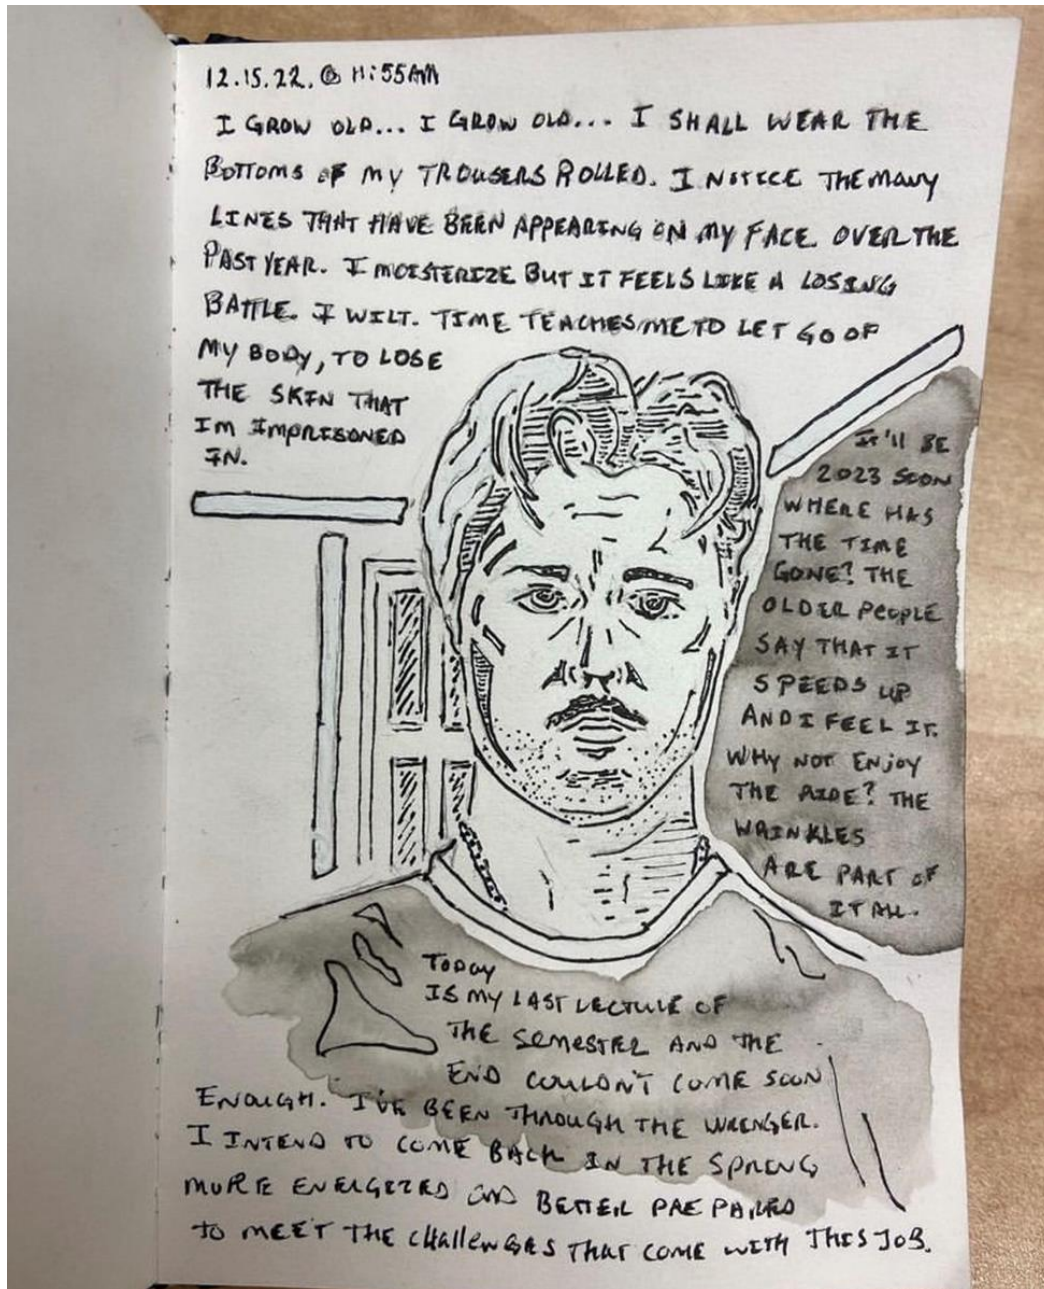 12.15.22. @ 11:55AM
I GROW OLD... I GROW OLD... I SHALL WEAR THE
BOTTOMS OF MY TROUSERS ROLLED. I NOTICE THE MANY
LINES THAT HAVE BEEN APPEARING ON MY FACE OVER THE
PAST YEAR. I MOISTERIZE BUT IT FEELS LIKE A LOSING
BATTLE. I WILT. TIME TEACHES ME TO LET GO OF
MY BODY, TO LOSE
THE SKIN THAT
IM IMPRISONED
IN.
IT'll BE
2023 SOON
WHERE HAS
THE TIME
GONE? THE
OLDER PEOPLE
SAY THAT IT
SPEEDS UP
AND I FEEL IT.
WHY NOT ENJOY
THE RIDE? THE
WRINKLES
ARE PART OF
IT ALL.
TODAY
IS MY LAST LECTURE OF
THE SEMESTER AND THE
END COULDN'T COME SOON
ENOUGH. I'VE BEEN THROUGH THE WRINGER.
I INTEND TO COME BACK IN THE SPRING
MORE ENERGIZED AND BETTER PREPARED
TO MEET THE CHALLENGES THAT COME WITH THIS JOB.